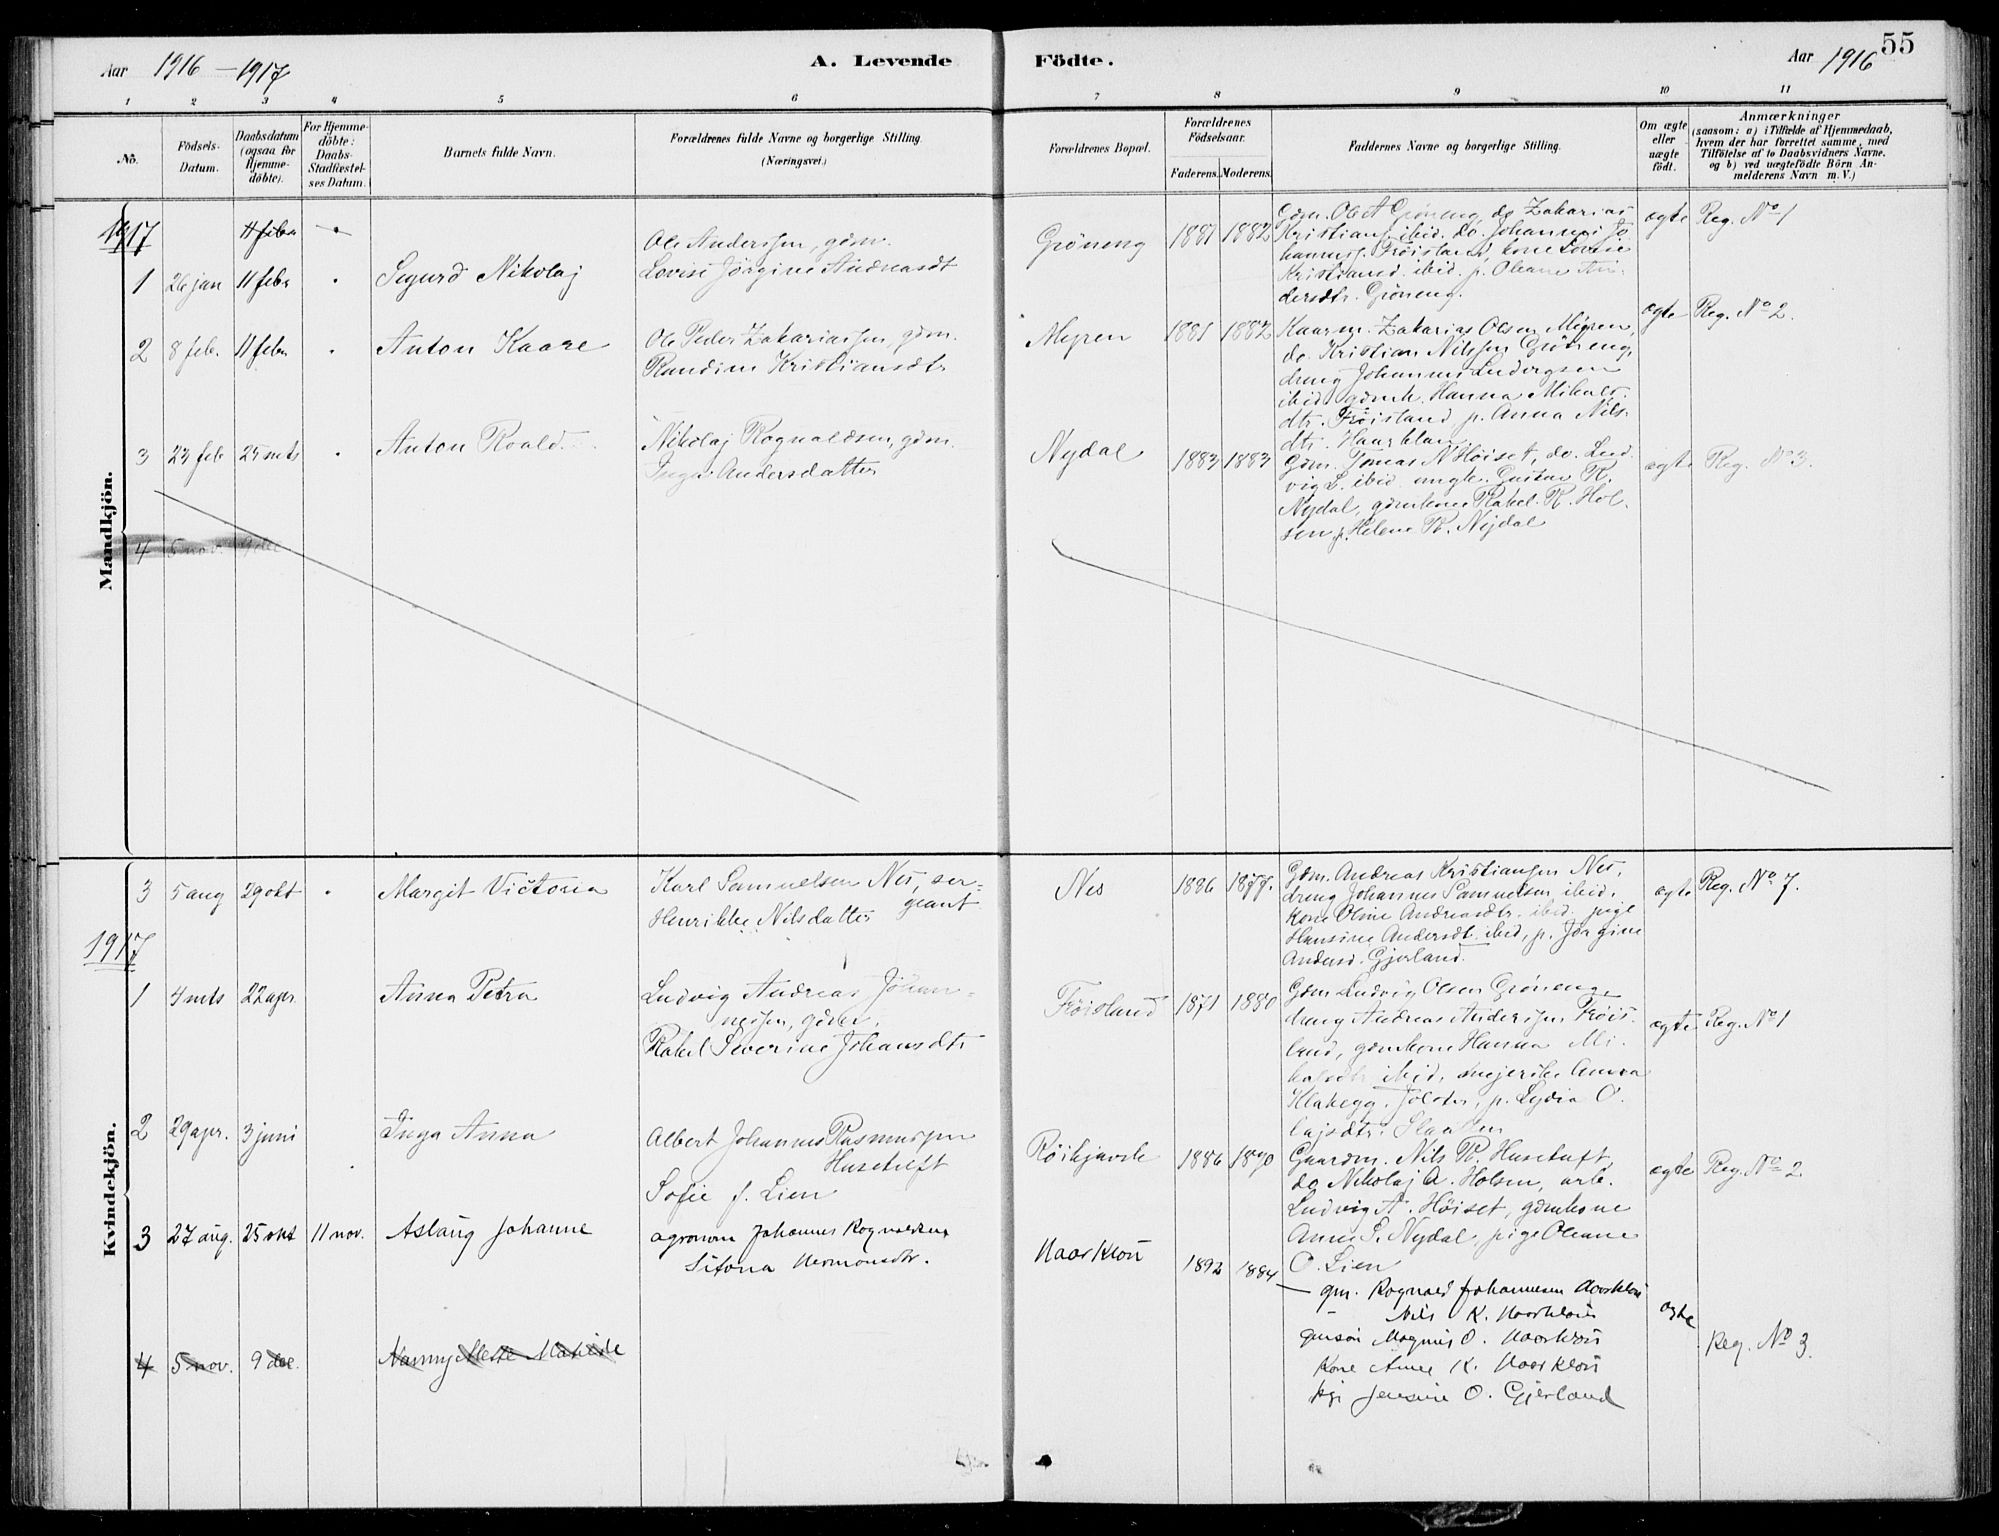 Aar 1916 – 1917
A. Levende
Födte.
Aar 1916
55
1 2 3 4 5 6 7 8 9 10 11
No.
Födsels-
Datum.
Daabsdatum
(ogsaa for
Hjemme-
döbte).
For Hjemme-
döbte:
Daabs-
Stadfæstel-
ses Datum.
Barnets fulde Navn.
Forældrenes fulde Navne og borgerlige Stilling.
(Næringsvei.)
Forældrenes Bopæl.
Forældrenes
Födselsaar.
Faderens. Moderens.
Faddernes Navne og borgerlige Stilling.
Om ægte
eller
uægte
födt.
Anmærkninger
(saasom: a) i Tilfælde af Hjemmedaab,
hvem der har forrettet samme, med
Tilföielse af to Daabsvidners Navne.
og b) ved uægtefödte Börn An-
melderens Navn m. V.)
Mandkjön.
1917
11 febr
1 26 jan 11 febr Sigurd Nikolaj
Ole Anderssen, gdm.
Lovise Jörgine Andreasdt
Gröneng 1881 1882
Gdm. Ole A Gröneng, do Zakarias
Kristians. ibid. do. Johannes Jo
hanness. Fröisland, kone Lovise
Kristiansd. ibid. p. Oleane An-
dersdtr. Gröneng.
ægte Reg. No 1
2 8 feb. 11 febr Anton Kaare
Ole Peder Zakariassen, gdm.
Randine Kristiansdtr
Myren 1881 1882
Kaarm. Zakarias Olsen Myren,
do. Kristian Nilssen Gröneng,
dreng Johannes Ludvigsen
ibid. gdmk. Hanna Mikals
dtr. Fröisland p. Anna Nils
dtr. Haarklau
ægte Reg. No 2.
3 23 feb 25 mts Anton Roald
Nikolaj Rognaldsen, gdm.
Inga Andersdatter
Nydal 1883 1883
Gdm. Tomas N Höiset, do. Lud
vig L. ibid. ungk. Gustav R.
Nydal, gdmkone Rakel R. Hol
sen p. Helene R. Nydal
ægte Reg. No 3.
4 5 nov. 9 dec
Kvindekjön.
3 5 aug 29 okt Margit Victoria
Karl Samuelsen Nes, ser=
geant
Henrikke Nilsdatter
Nes 1886 1877.
Gdm. Andreas Kristiansen Nes,
dreng Johannes Samuelsen ibid.
Kone Oline Andreasdtr. ibid. pige
Hansine Andersdt. ibid, p. Jörgine
Andersd. Gjerland.
ægte Reg. No 7.
1917
1 4 mts 22 apr. Anna Petra
Ludvig Andreas Johan-
nessen, gdm.
Rakel Severine Johansdtr
Fröisland 1871 1880
Gdm. Ludvig Olsen Gröneng,
dreng Andreas Anderssen Fröis
land, gdmkone Hanna Mi-
kalsdtr ibid, mejerske Anna
Klakegg, Jölster, p. Lydia O.
lajsdtr. Slaatten
ægte Reg. No 1
2 29 apr. 3 juni Inga Anna
Albert Johannes Rasmussen
Husetuft
Sofie f. Lien
1886 1890
Gaardm. Nils R. Husetuft,
do Nikolaj A. Holsen, arb.
Ludvig A. Höiset, gdmkone
Anne S. Nydal, pige Oleane
O. Lien
ægte Reg. No 2
3 27 aug. 25 okt 11 nov. Aslaug Johanne
agronom Johannes Rognaldsen
Sifona Hermonsdtr.
Haarklau 1892 1884
gm. Rognald Johannesen Haarklau
– Nils K. Haarklau
gmsön Magnus O. Haarklau
Kone Anne K. Haarklau
pige Jensine O. Gjerland
ægte
Reg. No 3.
4 5 nov. 9 dec. Nanny Mette Matilde